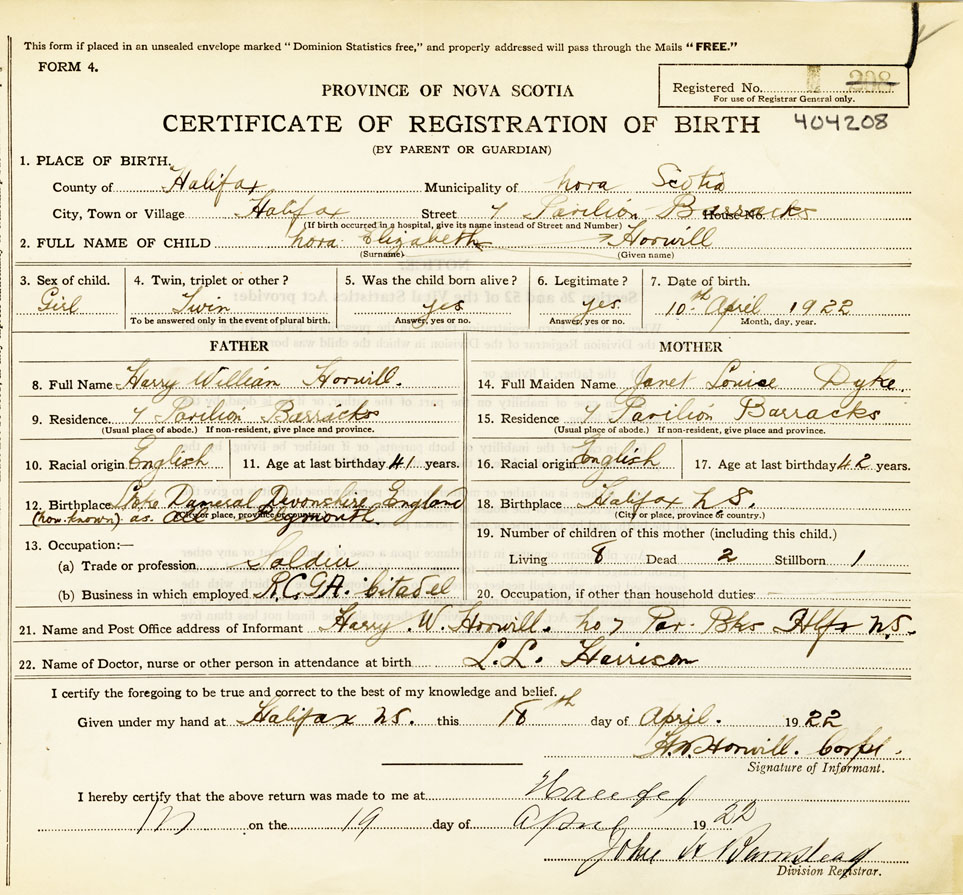 This form if placed in an unsealed envelope marked "Dominion Statistics free," and properly addressed will pass through the Mails "FREE."
FORM 4.
Registered No. 208
For use of Registrar General only.
PROVINCE OF NOVA SCOTIA
CERTIFICATE OF REGISTRATION OF BIRTH 404208
(BY PARENT OR GUARDIAN)
1. PLACE OF BIRTH.
County of Halifax Municipality of Nova Scotia
City, Town or Village Halifax Street 7 Pavilion Barracks House No.
(If birth occurred in a hospital, give its name instead of Street and Number)
2. FULL NAME OF CHILD Nora Elizabeth Horwill
(Surname) (Given name)
3. Sex of child. 4. Twin, triplet or other? 5. Was the child born alive? 6. Legitimate? 7. Date of birth.
Girl Twin yes yes. 10th April 1922
To be answered only in the event of plural birth. Answer, yes or no. Answer, yes or no. Month, day, year.
FATHER MOTHER
8. Full Name Harry William Horwill. 14. Full Maiden Name Janet Louise Dyke.
9. Residence. 7 Pavilion Barracks 15. Residence 7 Pavilion Barracks
(Usual place of abode.) If non-resident, give place and province. (Usual place of abode.) If non-resident, give place and province.
10. Racial origin English 11. Age at last birthday 41 years. 16. Racial origin English 17. Age at last birthday 42 years.
12. Birthplace Stoke Dameral Devonshire England 18. Birthplace Halifax N.S.
(City or place, province or country.) (City or place, province & country.)
(now known) as
13. Occupation:— 19. Number of children of this mother (including this child.)
(a) Trade or profession Soldier Living 8 Dead 2 Stillborn 1
(b) Business in which employed R.C.G.A. Citadel 20. Occupation, if other than household duties:
21. Name and Post Office address of Informant Harry. W. Horwill. No 7 Pav. Bks Hlfx N.S.
22. Name of Doctor, nurse or other person in attendance at birth L.L. Harrison
I certify the foregoing to be true and correct to the best of my knowledge and belief.
Given under my hand at Halifax N.S. this 18th day of April. 1922
H.W. Horwill. Corpl.
Signature of Informant.
I hereby certify that the above return was made to me at Halifax
on the 19 day of April 1922
John A Barnstead
Division Registrar.